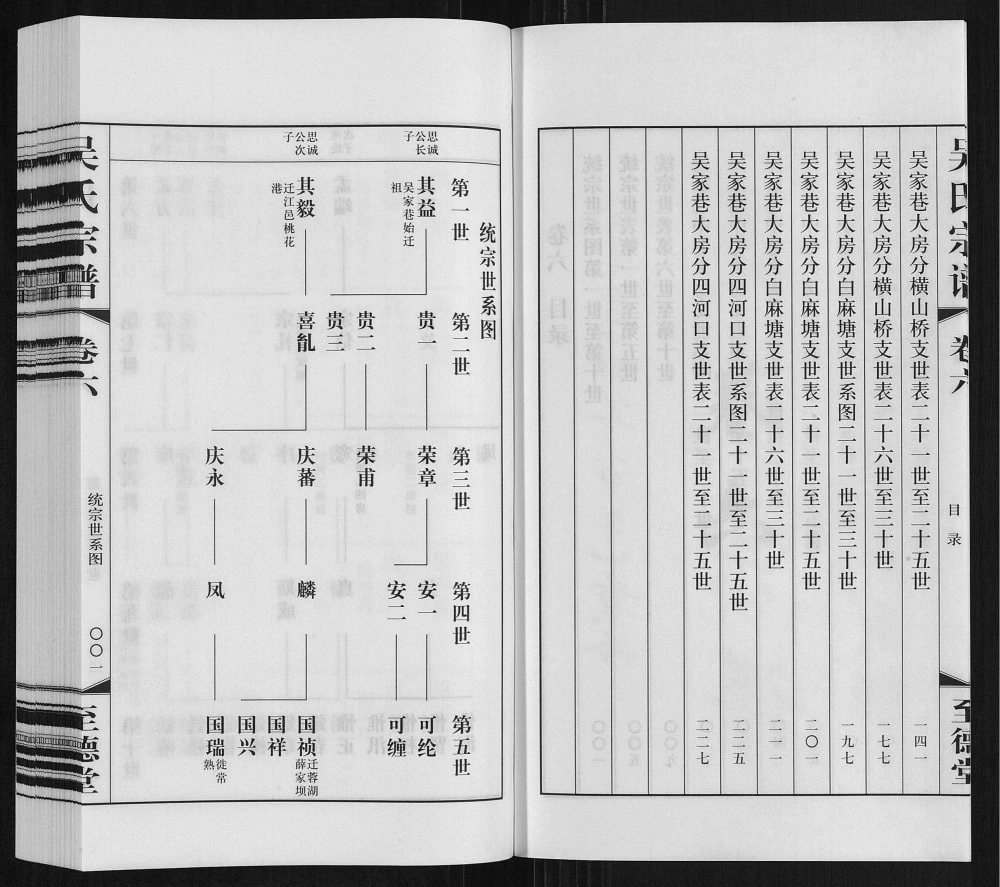 吴氏宗谱
卷六
目录
至德堂
吴家巷大房分横山桥支世表二十一世至二十五世
一四一
吴家巷大房分横山桥支世表二十六世至三十世
一七七
吴家巷大房分白麻塘支世系图二十一世至三十世
一九七
吴家巷大房分白麻塘支世表二十一世至二十五世
二〇一
吴家巷大房分白麻塘支世表二十六世至三十世
吴家巷大房分四河口支世系图二十一世至二十五世
二二五
吴家巷大房分四河口支世表二十一世至二十五世
二二七
统宗世系图
第一世
第二世
第三世
第四世
第五世
思诚公长子
其益
吴家巷始迁祖
贵一
荣章
安一
可纶
安二
可缠
贵二
荣甫
贵三
思诚公次子
其毅
迁江邑桃花港
喜乱
庆蕃
麟
国祯
迁蓉湖薛家坝
国祥
国兴
庆永
凤
国瑞
徙常熟
吴氏宗谱
卷六
统宗世系图
〇〇一
至德堂